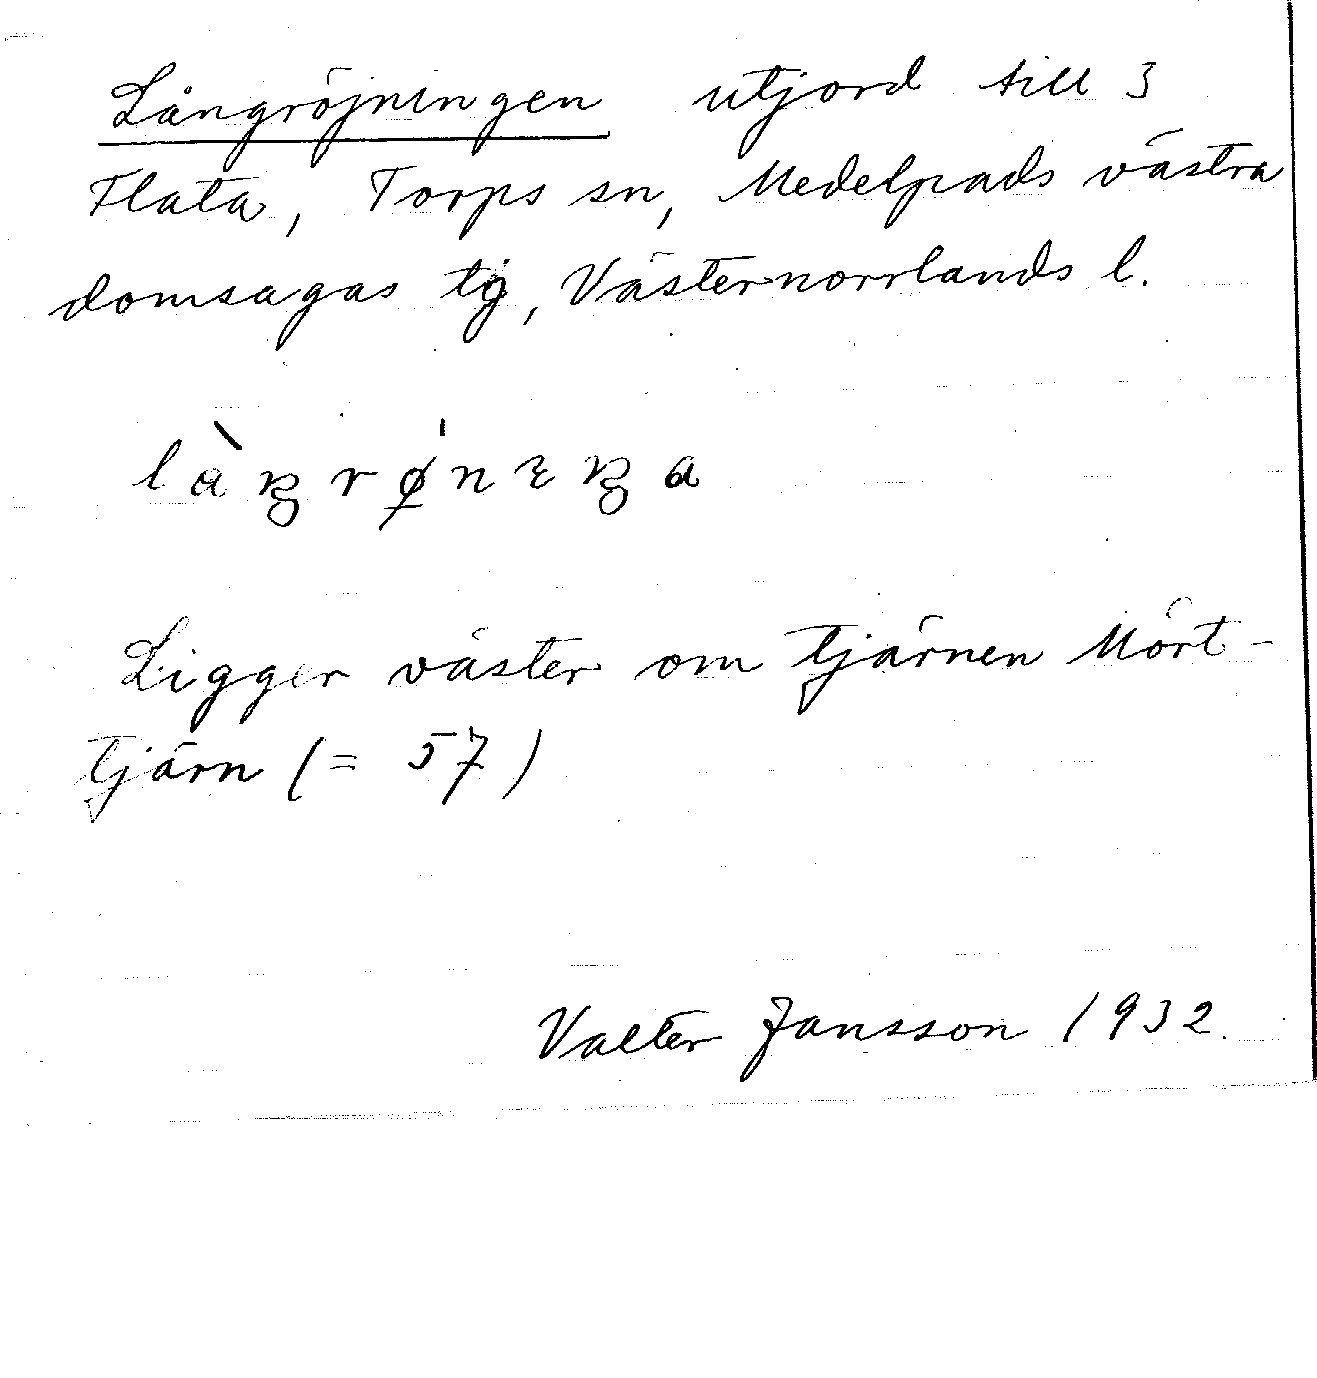 Långröjningen utjord till 3
Flata, Torps sn, Medelpads västra
domsagas tg, Västernorrlands l.
Ligger väster om tjärnen Mört-
tjärn (= 57)
Valter Jansson 1932.